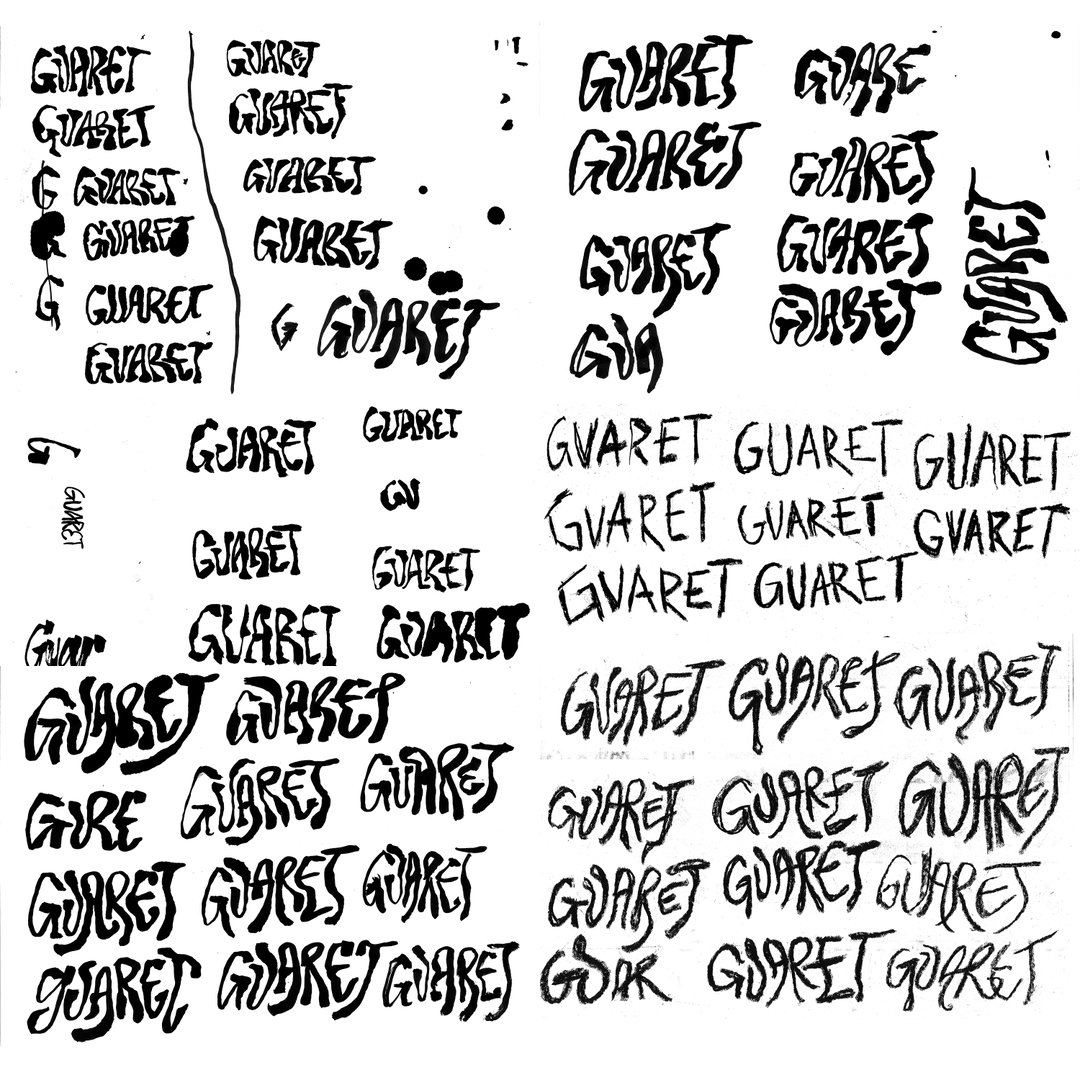 GUARET
GUARET
G GUARET
G GUARET
G GUARET
GUARET
GUARET
GUARET
GUARET
GUARET
G GUARET
GUARET
GUARET
GUARET
GUA
GUARE
GUARET
GUARET
GUARET
GUARET
G
GUARET
Guar
GUARET
GUARET
GUARET
GUARET
GU
GUARET
GUARET
GUARET GUARET GUARET
GUARET GUARET GUARET
GUARET GUARET
GUARET GUARET
GURE GUARET GUARET
GUARET GUARET GUARET
GUARET GUARET GUARET
GUARET GUARET GUARET
GUARET GUARET GUARET
GUARET GUARET GUARET
GUAR GUARET GUARET